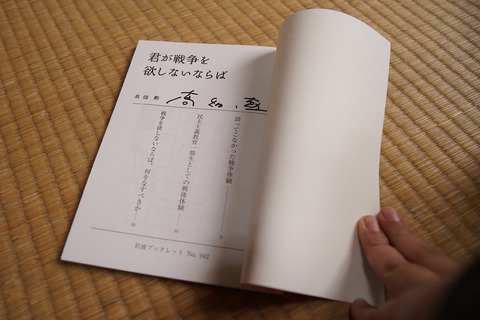 君が戦争を
欲しないならば
高畑 勲
高畑勲
語ってこなかった戦争体験
民主主義教育一期生としての戦後体験
戦争を欲しないならば、何をなすべきか
岩波ブックレット No. 942